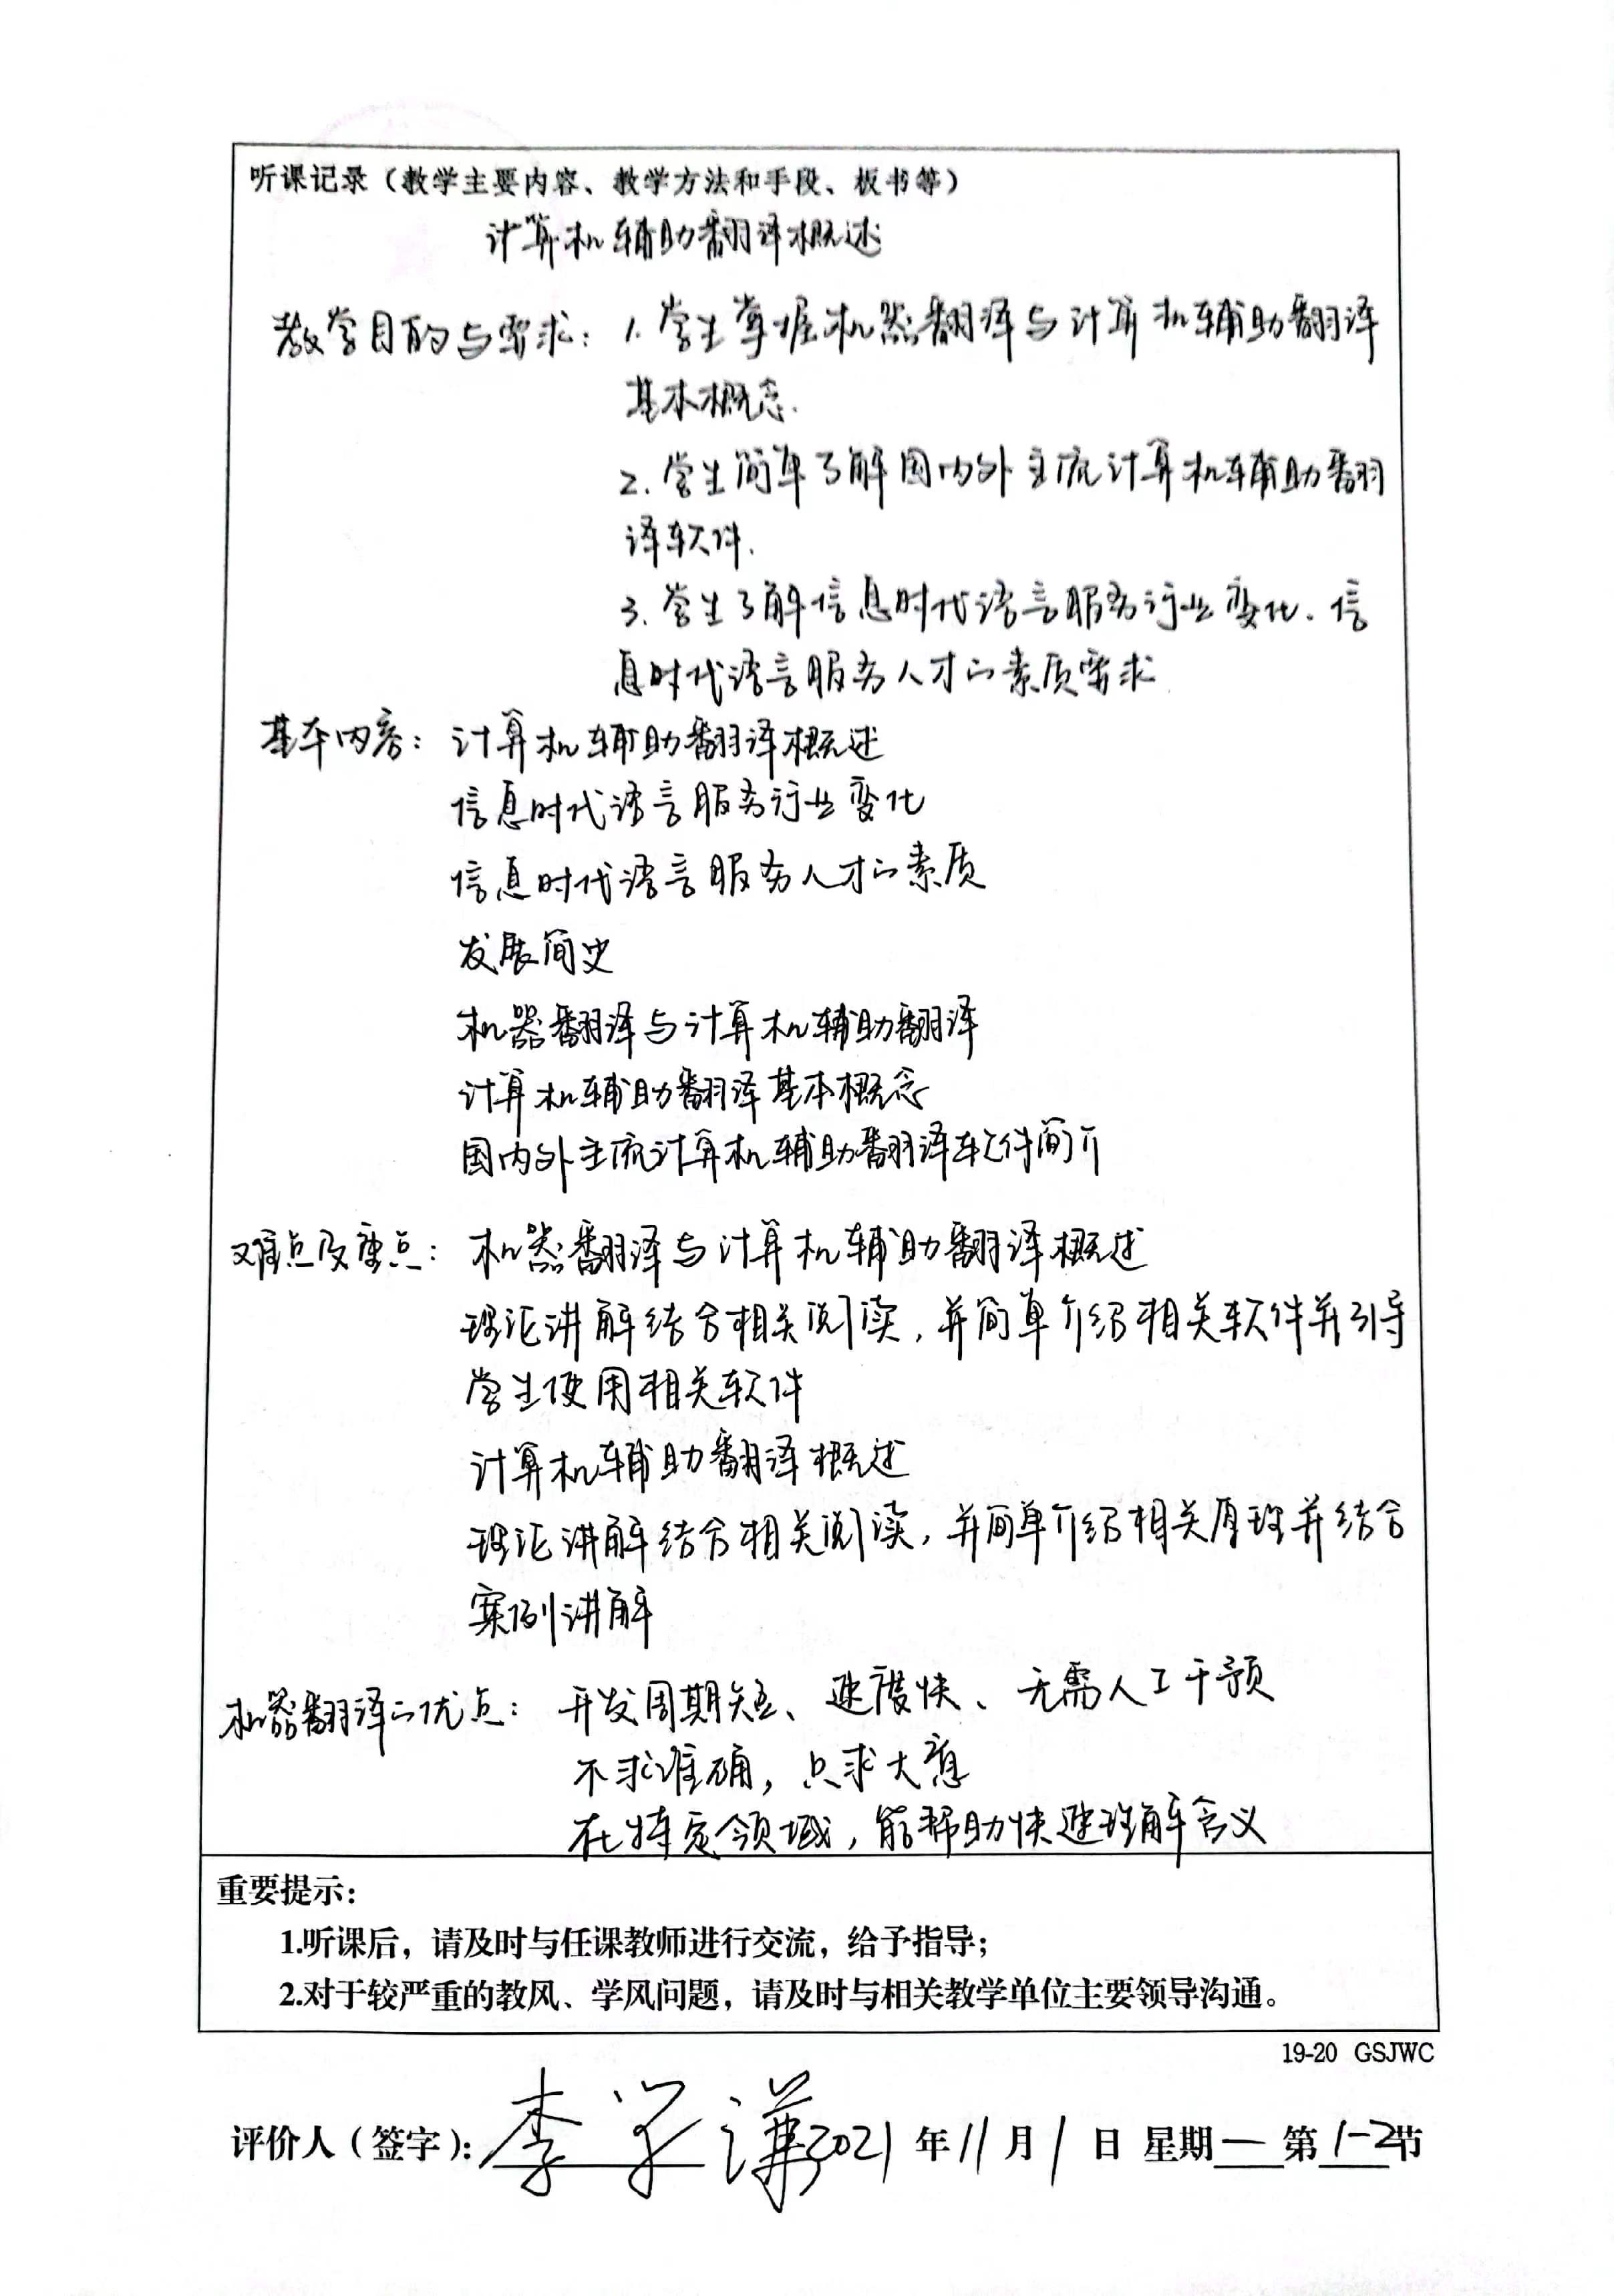 听课记录（教学主要内容、教学方法和手段、板书等）
计算机辅助翻译概述
教学目的与要求：1. 学生掌握机器翻译与计算机辅助翻译
基本概念.
2. 学生简单了解国内外主流计算机辅助翻
译软件.
3. 学生了解信息时代语言服务行业变化. 信
息时代语言服务人才的素质要求
基本内容：计算机辅助翻译概述
信息时代语言服务行业变化
信息时代语言服务人才的素质
发展简史
机器翻译与计算机辅助翻译
计算机辅助翻译基本概念
国内外主流计算机辅助翻译软件简介
难点及重点：机器翻译与计算机辅助翻译概述
理论讲解结合相关阅读，并简单介绍相关软件并引导
学生使用相关软件
计算机辅助翻译概述
理论讲解结合相关阅读，并简单介绍相关原理并结合
案例讲解
机器翻译的优点：开发周期短、速度快、无需人工干预
不求准确，只求大意
在特定领域，能帮助快速理解含义
重要提示：
1.听课后，请及时与任课教师进行交流，给予指导；
2.对于较严重的教风、学风问题，请及时与相关教学单位主要领导沟通。
19-20 GSJWC
评价人（签字）：李 2021 年 11 月 1 日 星期一 第 1-2 节